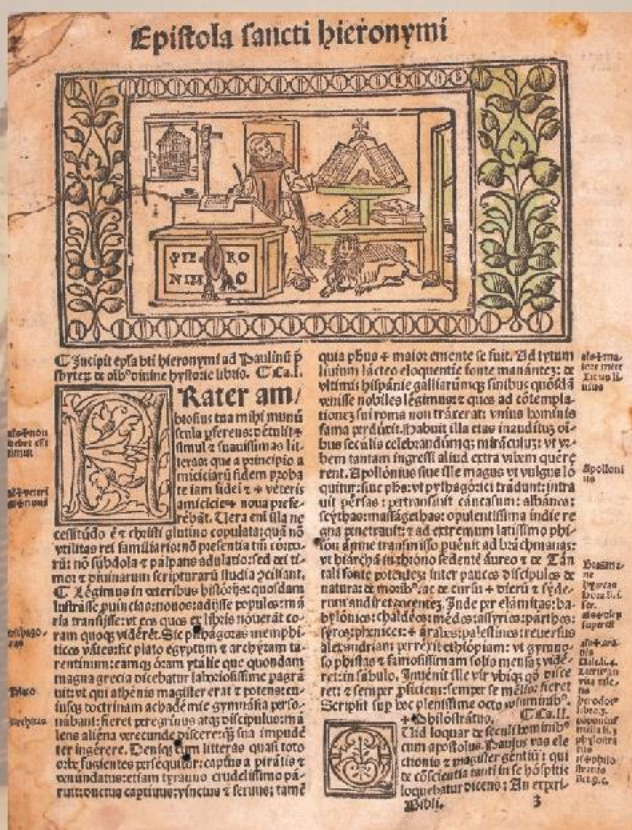 Epistola sancti hieronymi
PIE RO
NIM O
Incipit epła bti hieronymi ad Paulinũ p̃
sbyteꝝ de oĩbꝰ diuine hystorie libris. Ca.I.
Frater am/
brosius tua mihi munu
scula ꝑferens: detulit ⁊
simul ⁊ suauissimas lit
teras: que a principio a
miciciaꝝ fidem proba
te iam fidei ⁊ veteris
amicicie noua prefe⸗
rebãt. Uera eni illa ne
cessitudo ẽ ⁊ christi glutino copulata: quã nõ
vtilitas rei familiaris: nõ presentia tm̃ corpo⸗
rũ: nõ subdola ⁊ palpans adulatio: sed dei ti⸗
mor ⁊ diuinarum scripturarũ studia ꝯciliant.
Legimus in veteribus historijs: quosdam
lustrasse ꝓuincias: nouos adijsse populos: ma
ria transisse: vt eos quos ex libris nouerãt co⸗
ram quoqꝫ viderẽt. Sic pithagoras memphi⸗
ticos vates: sic plato egyptum ⁊ archytam ta⸗
rentinum: eamqꝫ oram ytalie que quondam
magna grecia dicebatur laboriosissime pagra
uit: vt qui athenis magister erat ⁊ potens: cu⸗
iusqꝫ doctrinam achademie gymnasia perso⸗
nabant: fieret peregrinus atqꝫ discipulus: ma
lens aliena verecunde discere: q̃ sua impudẽ
ter ingerere. Deniqꝫ cum litteras quasi toto
orbe fugientes persequitur: captus a piratis ⁊
venundatus: etiam tyranno crudelissimo pa⸗
ruit: ductus captiuus: vinctus ⁊ seruus: tamẽ
quia phus ⁊ maior emente se fuit. Ad tytum
liuium lacteo eloquentie fonte manantez: de
vltimis hispanie galliarũmqꝫ finibus quosdã
venisse nobiles legimus: ⁊ quos ad cõtempla
tionez sui roma non traxerat: vnius hominis
fama perduxit. Habuit illa etas inauditũ oi⸗
bus seculis celebrandũmqꝫ miraculuz: vt vr⸗
bem tantam ingressi aliud extra vrbem quere
rent. Apollonius siue ille magus vt vulgus lo
quitur: siue phs: vt pythagorici tradunt: intra
uit persas: pertransiuit caucasum: albanos:
scythas: massagethas: opulentissima indie re
gna penetrauit: ⁊ ad extremum latissimo phi⸗
son amne transmisso puenit ad brachmanas:
vt hiarchã in throno sedentẽ aureo ⁊ de Tan
tali fonte potentez: inter paucos discipulos de
natura: de moribꝰ: ac de cursu dierũ ⁊ syde⸗
rum audiret docentez. Inde per elamitas: ba⸗
bylonios: chaldeos: medos: assyrios: parthos:
syros: phenices: ⁊ arabes: palestinos: reuersus
alexandriam: perrexit ethiopiam: vt gymno⸗
sophistas ⁊ famosissimam solis mensaz videˉ
ret: in sabulo. Inuenit ille vir vbiqꝫ qđ disce
ret: ⁊ semper ꝓficiens: semper se melior fieret
Scripsit sup hoc plenissime octo voluminibꝰ.
philostratus. Ca.II.
Quid loquar de seculi hominibꝰ
cum apostolus Paulus vas ele
ctionis ⁊ magister gentiũ: qui
de cõscientia tanti in se hospitis
loquebatur dicens: An experi⸗
Bibli. 3
Plato
Apolloni
us